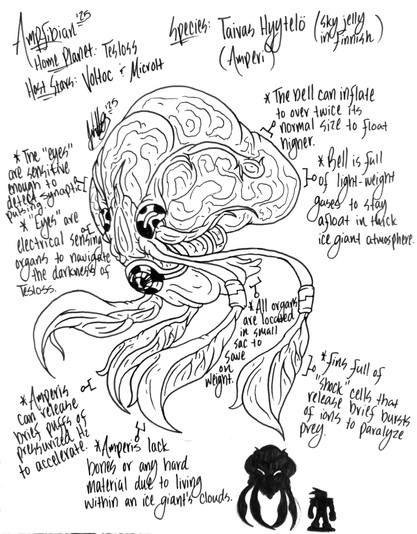 Ampfibian '25
Home Planet: Tesloss
Host Stars: Voltac & Microlt
Species: Taivas Hyytelö (sky jelly
in Finnish)
(Amperi)
'25
* The bell can inflate
to over twice its
normal size to float
higher.
* The "eyes"
are sensitive
enough to
detect synaptic
pulsing
* "Eyes" are
electrical sensing
organs to navigate
the darkness of
Tesloss.
* Bell is full
of light-weight
gases to stay
afloat in thick
ice giant atmosphere.
* All organs
are located
in small
sac to
save
on
weight.
* Fins full of
"shock" cells that
release brief bursts
of ions to paralyze
prey.
* Amperis
can release
brief puffs of
pressurized H2
to accelerate.
* Amperis lack
bones or any hard
material due to living
within an ice giant's clouds.